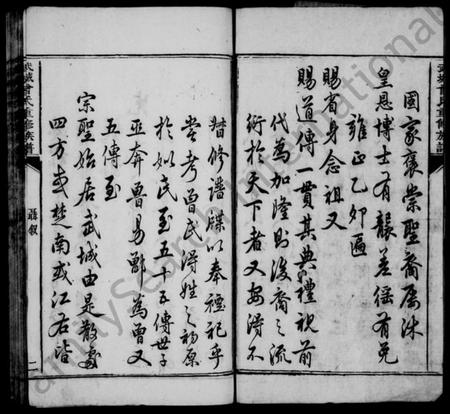 武城曾氏重修族譜
國家褒崇聖裔屢沐
皇恩博士有韻差徭有免
雍正乙卯匾
賜省身念祖又
賜道傳一貫其典禮視前
代為加隆則後裔之流
衍於天下者又安得不
督修譜牒以奉禋祀乎
嘗考曾氏得姓之初原
於姒氏至五十五傳世子
巫奔魯易鄫為曾又
五傳至
宗聖始居武城由是散處
四方或楚南或江右皆
武城曾氏重修族譜
聶叙
二
FamilySearch International